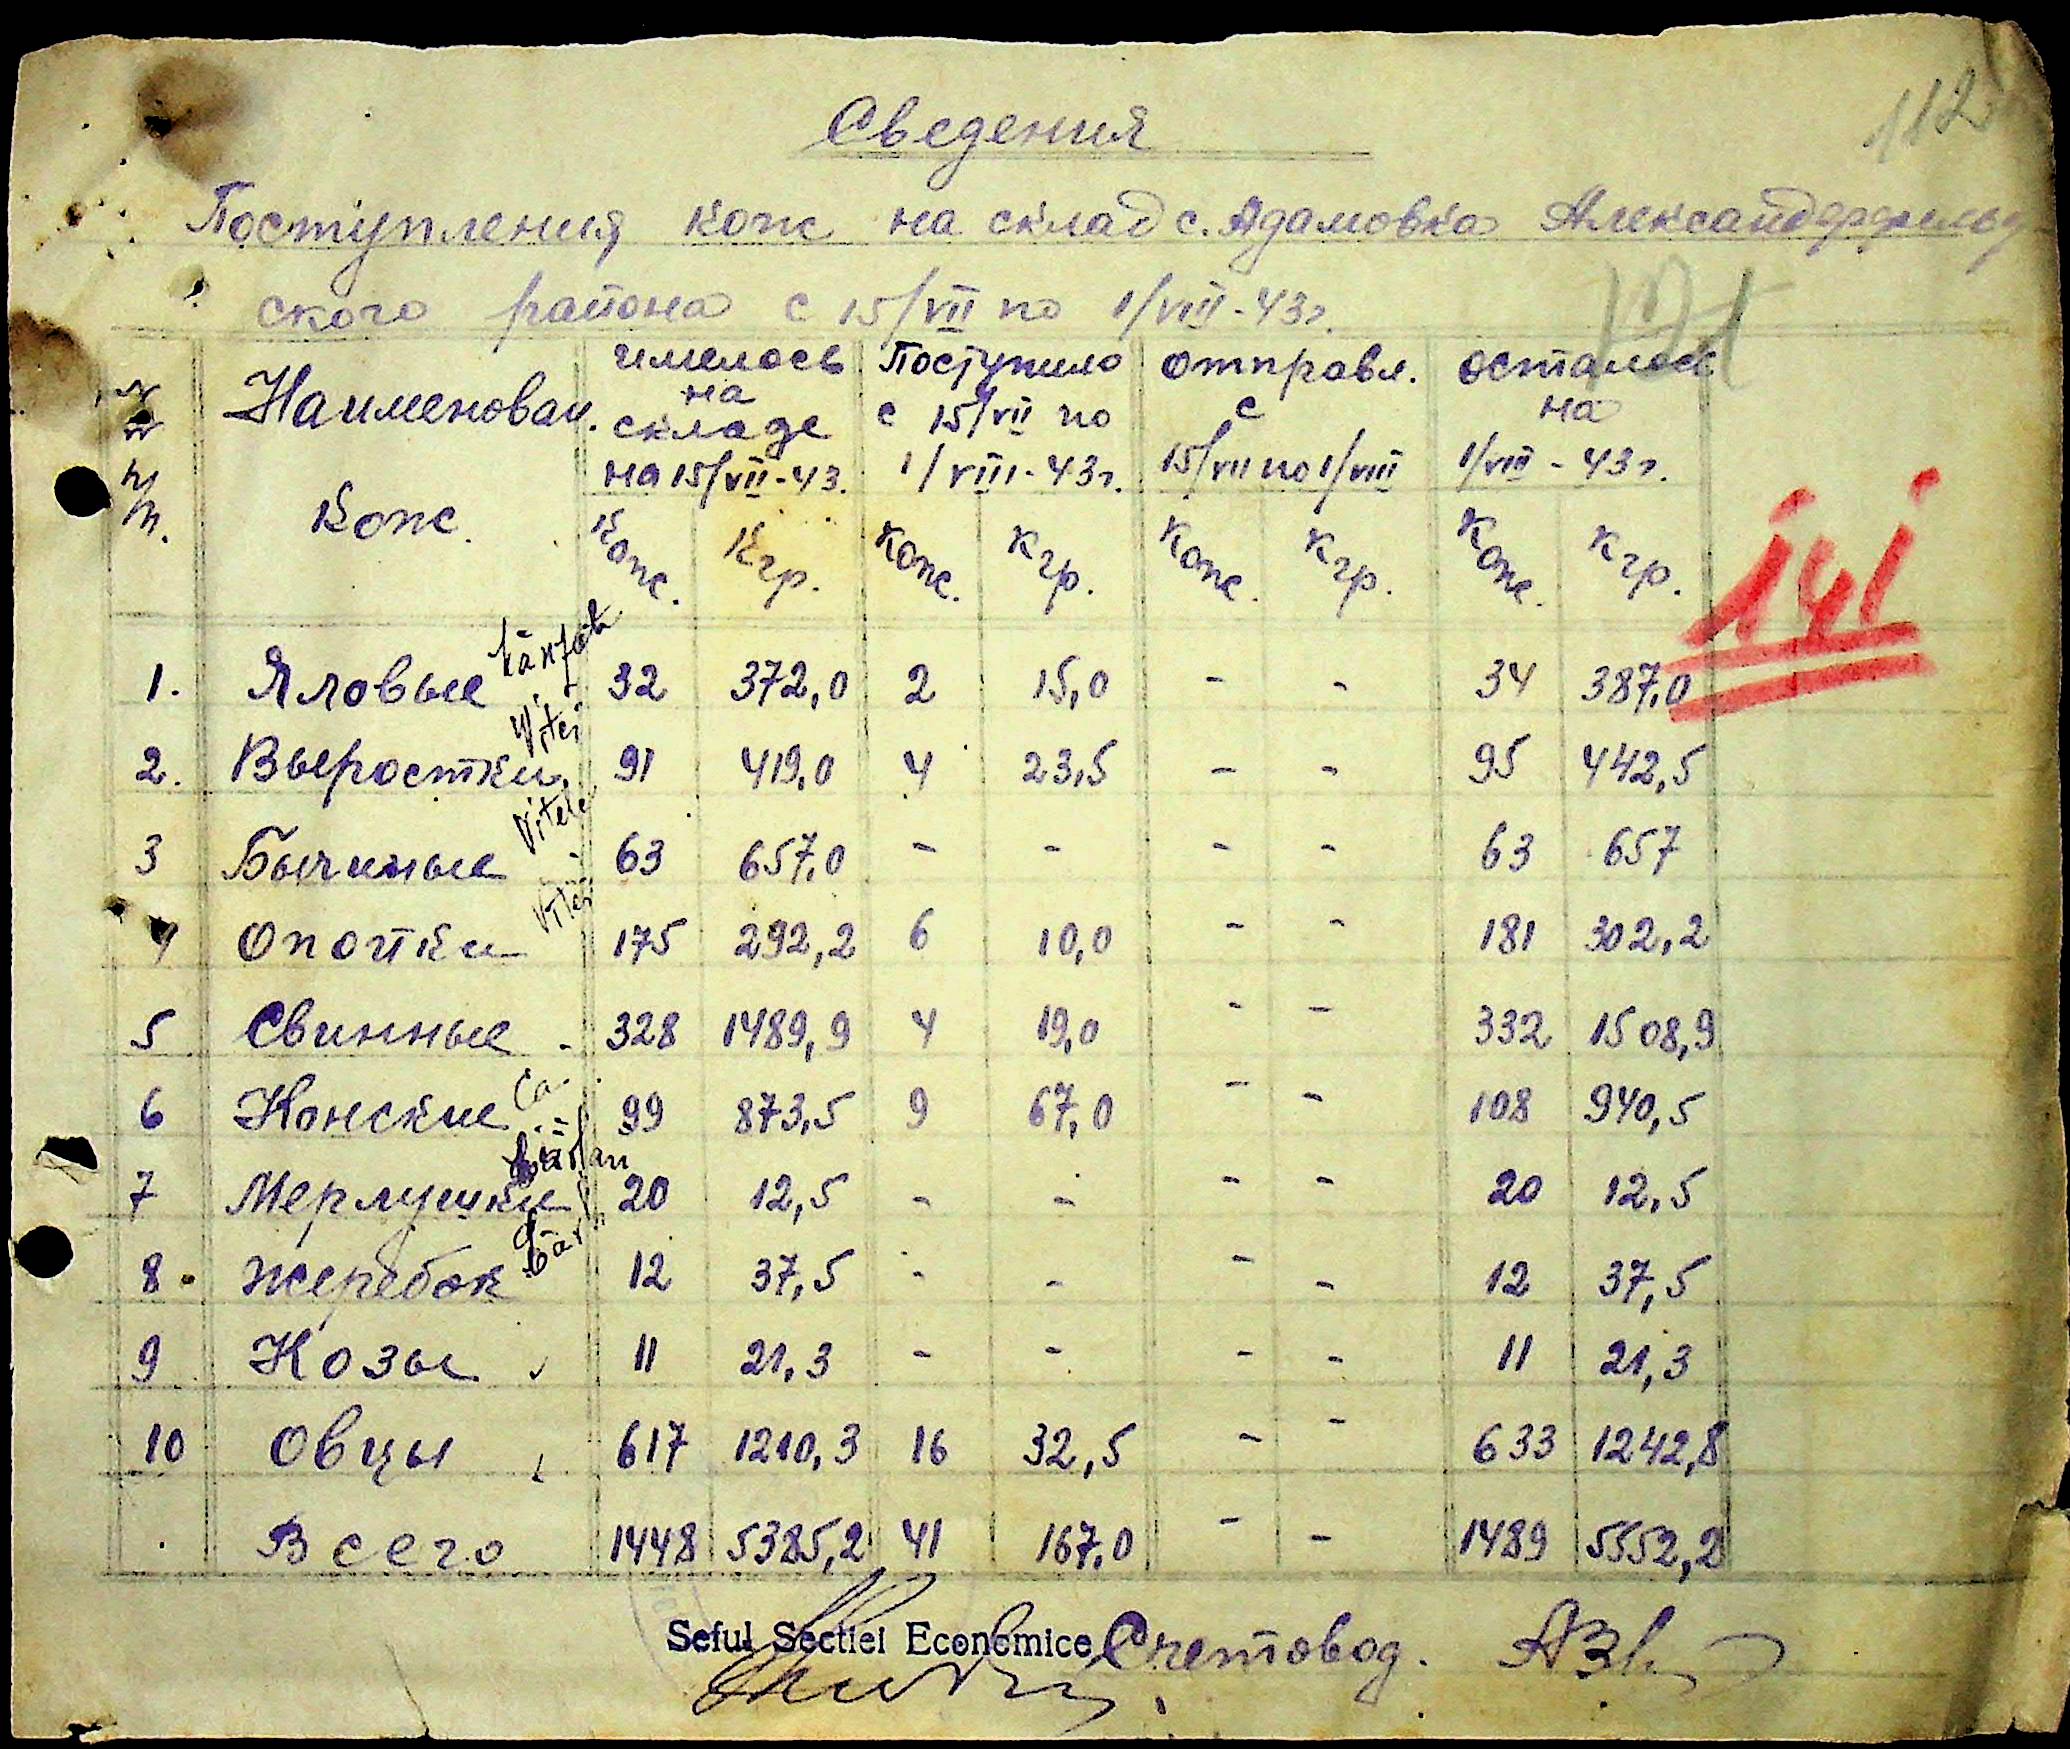 112
Сведения
Поступления кож на склад с. Адамовка Александерфельд
ского района с 15/VII по 1/VIII-43г.
№№ п/п. Наименован. кож. имелось на складе на 15/VII-43. Поступило с 15/VII по 1/VIII-43г. отправл. с 15/VII по 1/VIII осталось на 1/VIII-43г.
Кож. Кгр. Кож. Кгр. Кож. Кгр. Кож. Кгр.
141
1. Яловые 32 372,0 2 15,0 - - 34 387,0
Vitei
2. Выростки 91 419,0 4 23,5 - - 95 442,5
Vitei
3 Бычиные 63 657,0 - - - - 63 657
Vitei
4 Опойки 175 292,2 6 10,0 - - 181 302,2
5 Свинные 328 1489,9 4 19,0 - - 332 1508,9
6 Конские 99 873,5 9 67,0 - - 108 940,5
7 Мерлушки 20 12,5 - - - - 20 12,5
8. жеребок 12 37,5 - - - - 12 37,5
9 Козы 11 21,3 - - - - 11 21,3
10 Овцы 617 1210,3 16 32,5 - - 633 1242,8
Всего 1448 5385,2 41 167,0 - - 1489 5552,2
Seful Sectiei Economice Счетовод.